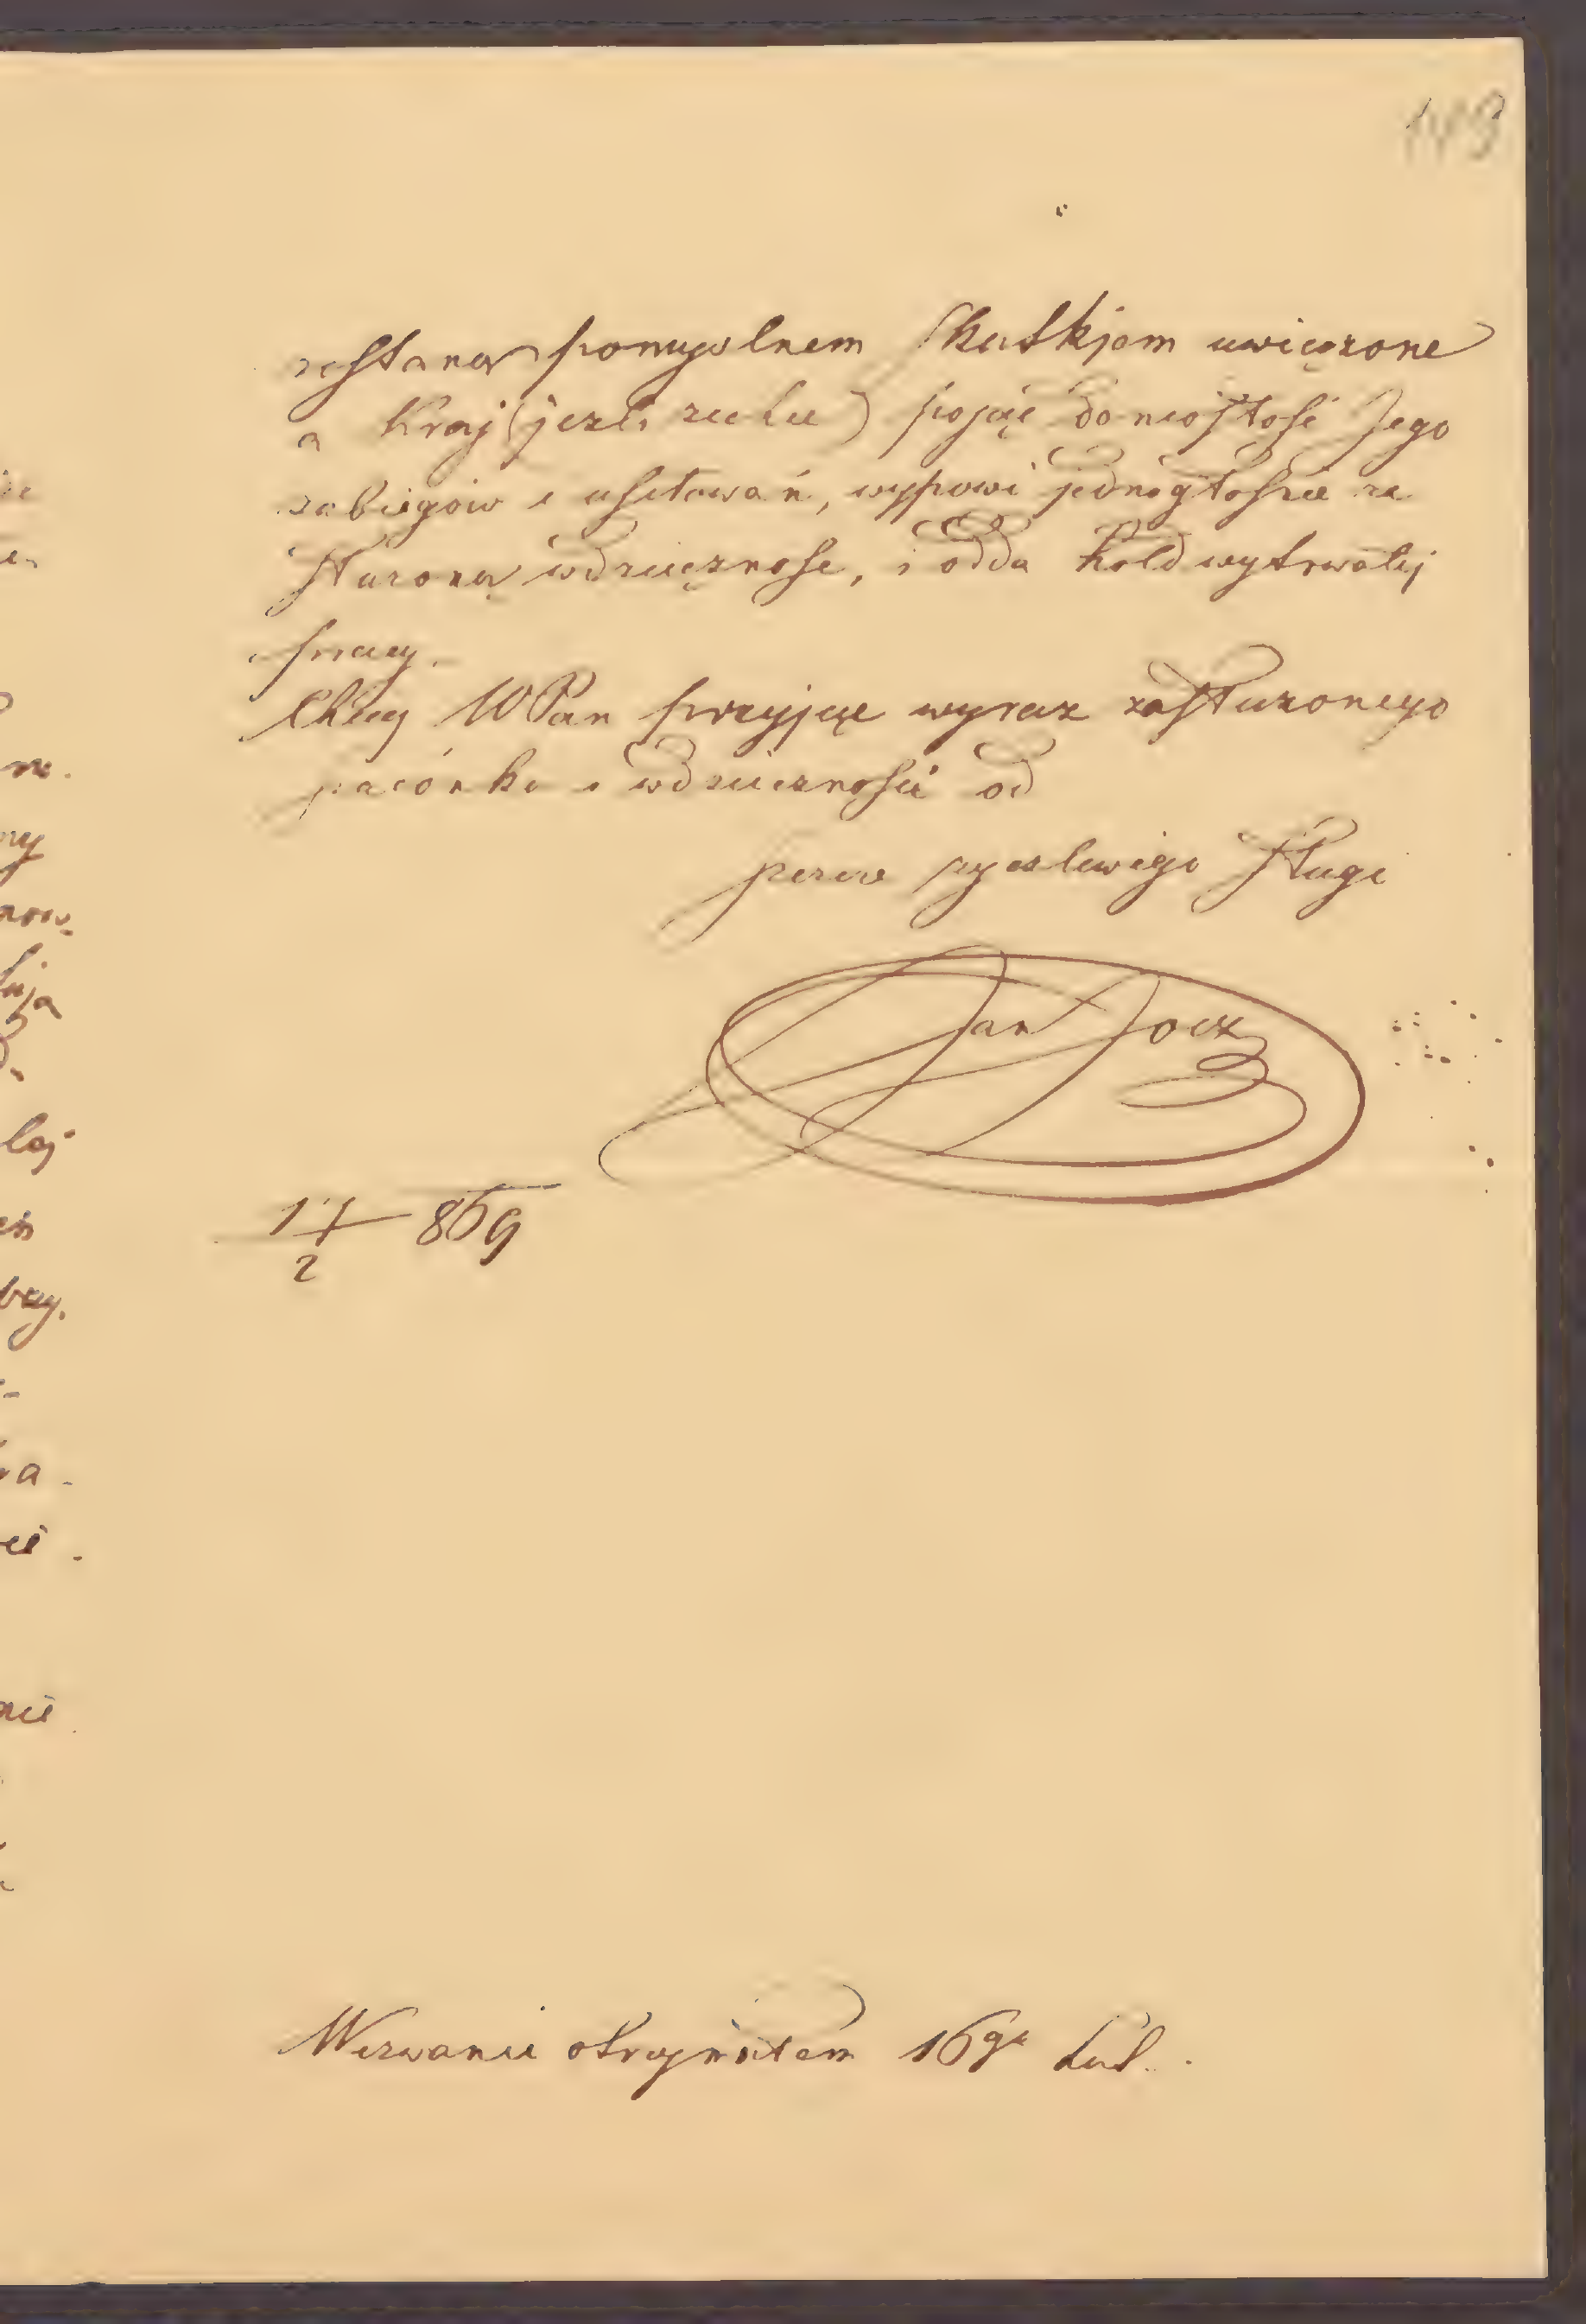 149
zostaną pomyslnem skutkjem uwięczone
a Kraj (jezli zechce) pojąć doniosłosć Jego
zabiegów i usiłowań, wypowi jednogłosnie za
służoną wdzięcznosc, i odda hołd wytrwałej
pracy.
Chciej WPan przyjąć wyraz zasłuzonego
szacónku i wdziecznosci od
zyczlewego sługi
Jan Jocz
17/2 869
Wezwanie otrzymałem 16go Lut.